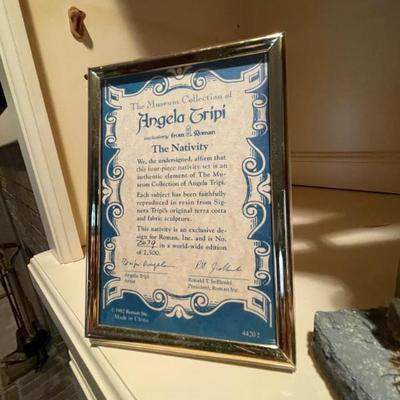 The Museum Collection of
Angela Tripi
exclusively from Roman
The Nativity
We, the undersigned, affirm that
this four-piece nativity set is an
authentic element of The Mu-
seum Collection of Angela Tripi.
Each subject has been faithfully
reproduced in resin from Sig-
nora Tripi's original terra cotta
and fabric sculpture.
This nativity is an exclusive de-
sign for Roman, Inc. and is No.
in a world-wide edition
of 2,500.
Angela Tripi
Artist
Ronald T. Jedlinski
President, Roman Inc.
© 1992 Roman Inc.
Made in China